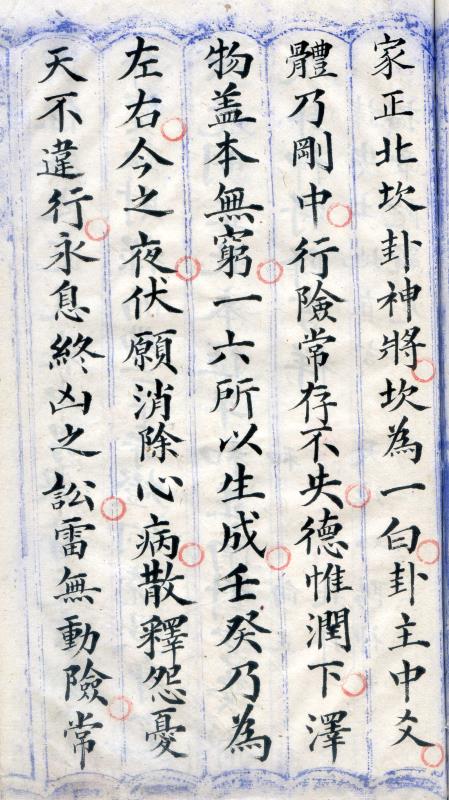 家正北坎卦神將坎為一白卦主中爻
體乃剛中行險常存不失德惟潤下澤
物盖本無窮一六所以生成壬癸乃為
左右今之夜伏願消除心病散釋怨憂
天不違行永息終凶之訟雷無動險常